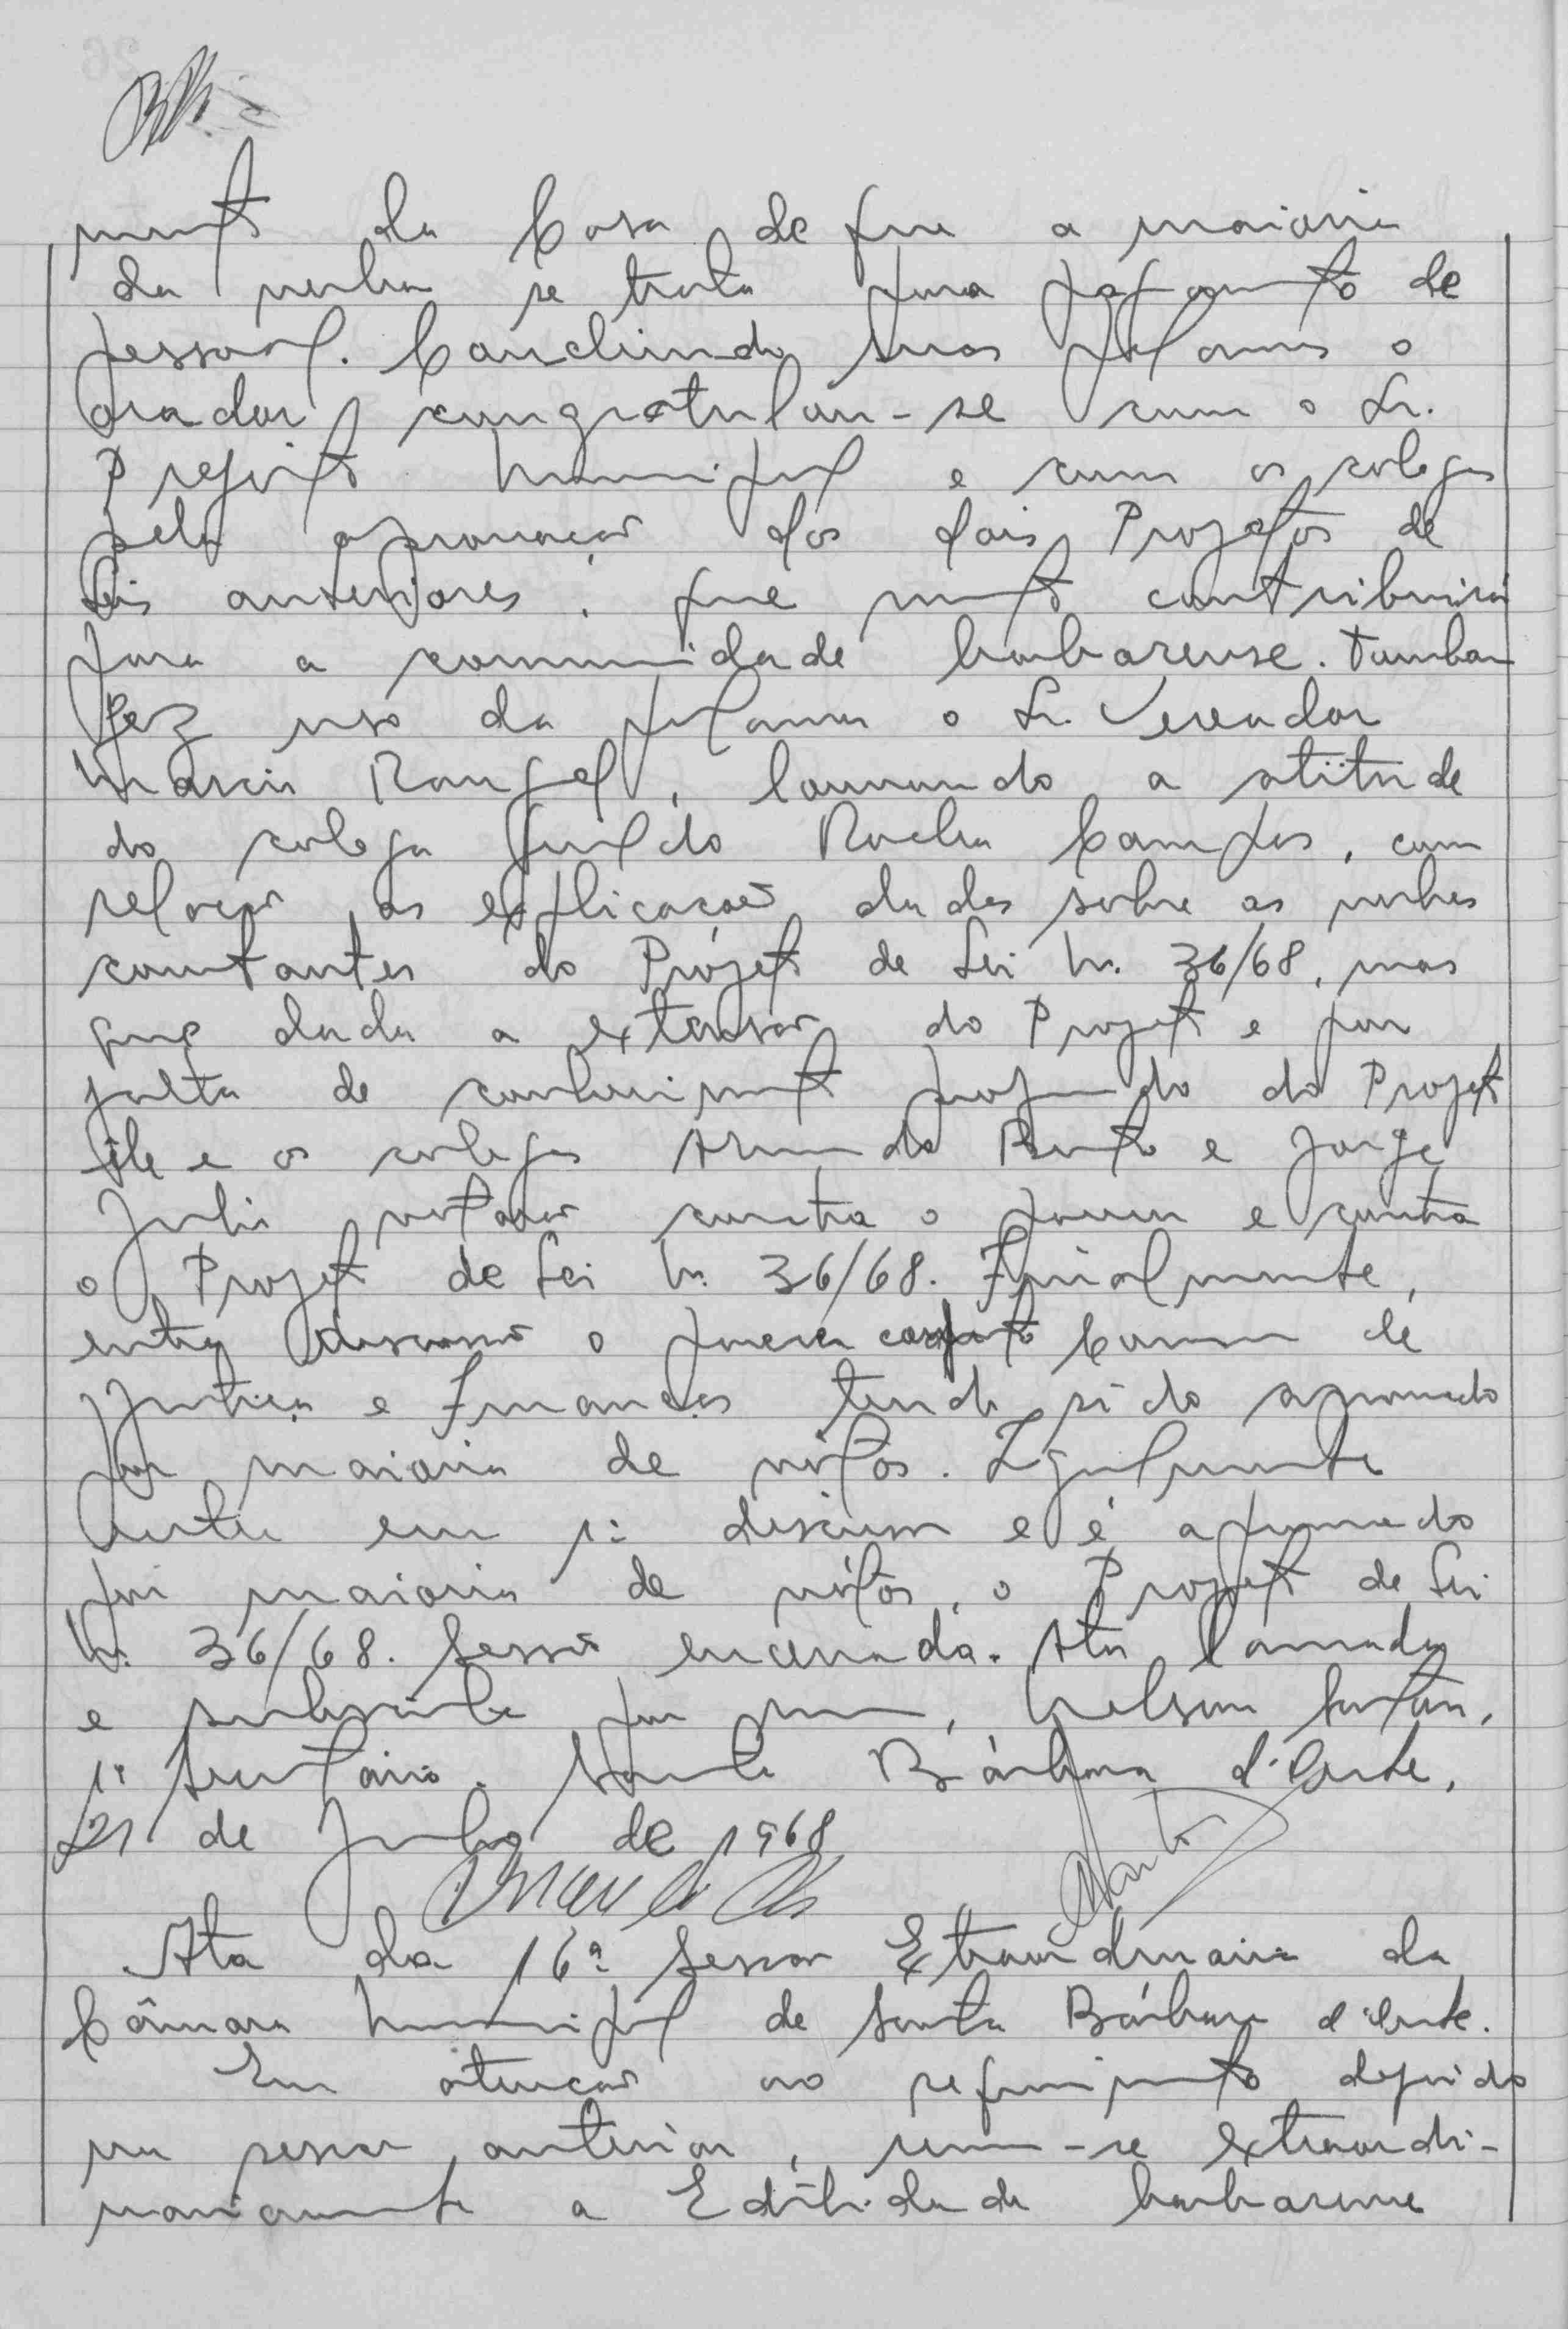 mento da Casa de que a maioria
da verba se trata para pagamento de
pessoal. Concluindo suas palavras o
orador congratulou-se com o Sr.
Prefeito Municipal e com os colegas
pela aprovação dos dois Projetos de
Leis anteriores, que muito contribuirá
para a comunidade barbarense. Também
fez uso da palavra o Sr. Vereador
Marcio Rangel, louvando a atitude
do colega Guildo Rocha Campos, com
relação as explicações dadas sobre as verbas
constantes do Projeto de Lei N. 36/68, mas
que dada a extensão do Projeto e por
falta de conhecimento profundo do Projeto
êle e os colegas Bento e Jorge
Julio votarão contra o parecer e contra
o Projeto de Lei N. 36/68. Finalmente,
entra discussão o parecer conjunto Comissão de
Justiça e Finanças tendo sido aprovado
por maioria de vótos. Igualmente
entra em 1ª discussão e é aprovado
por maioria de vótos, o Projeto de Lei
N. 36/68. Sessão encerrada. Ata lavrada
e subscrita por mim, Nelson
1º Secretário. Santa Bárbara d'Oeste,
21 de Julho de 1968
Ata da 16ª Sessão Extraordinária da
Câmara Municipal de Santa Bárbara d'Oeste.
Em atenção ao requerimento deferido
na sessão anterior, reuniu-se extraordi-
nariamente a Edilidade barbarense